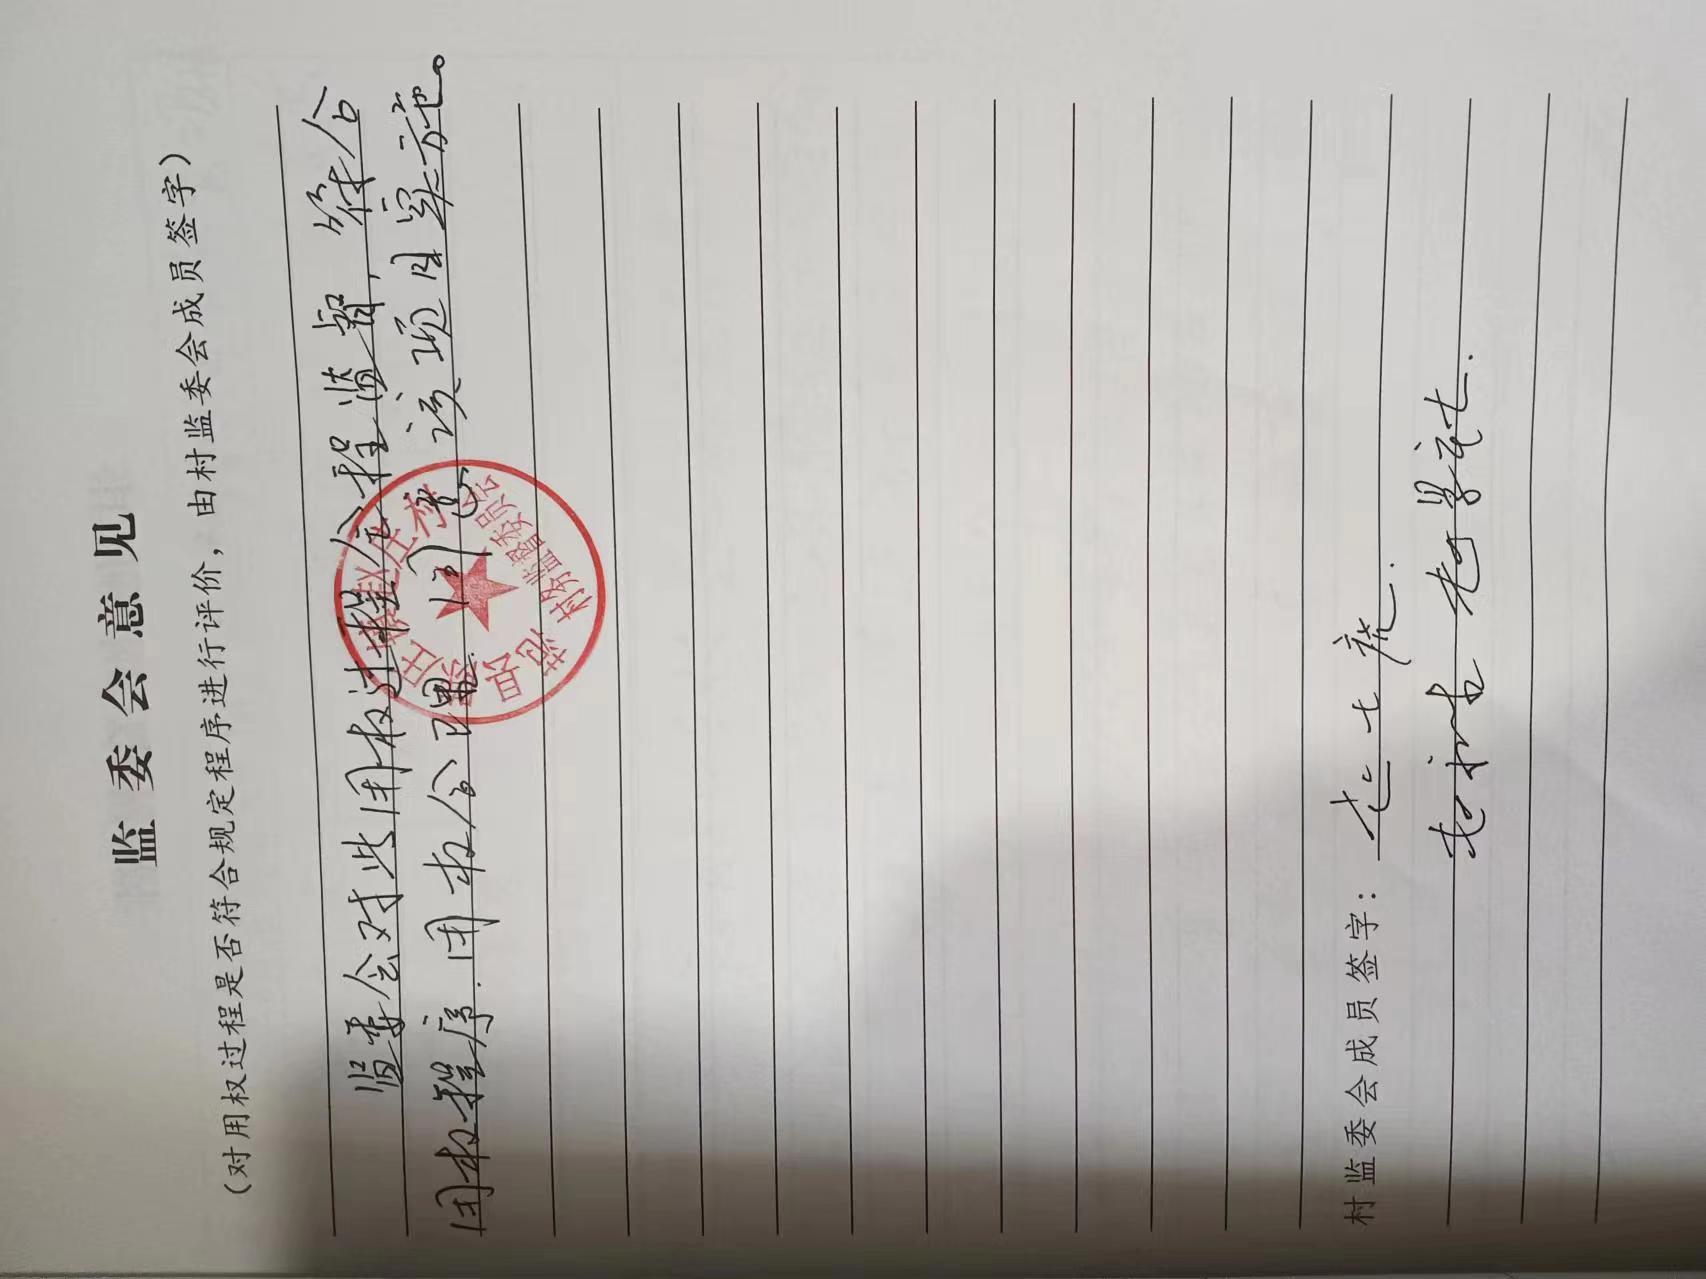 监委会意见
（对用权过程是否符合规定程序进行评价，由村监委会成员签字）
监委会对此用权过程全程监督，符合
用权程序.用权合理.同意该项目实施。
范县陈庄镇赵庄村
村务监督委员会
村监委会成员签字：